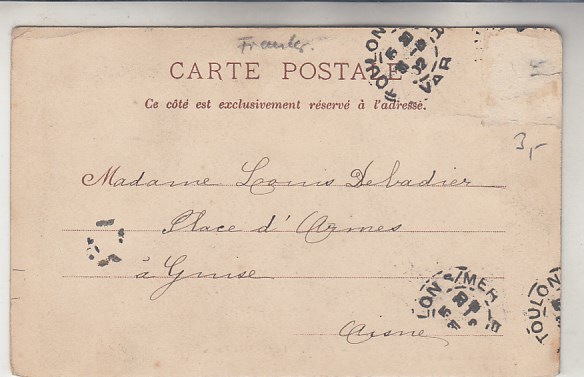 CARTE POSTALE
Ce côté est exclusivement réservé à l'adresse.
TOULON
VAR
3,-
Madame Louis Debadier
Place d'Armes
à Guise
Aisne
TOULON S/MER
TOULON